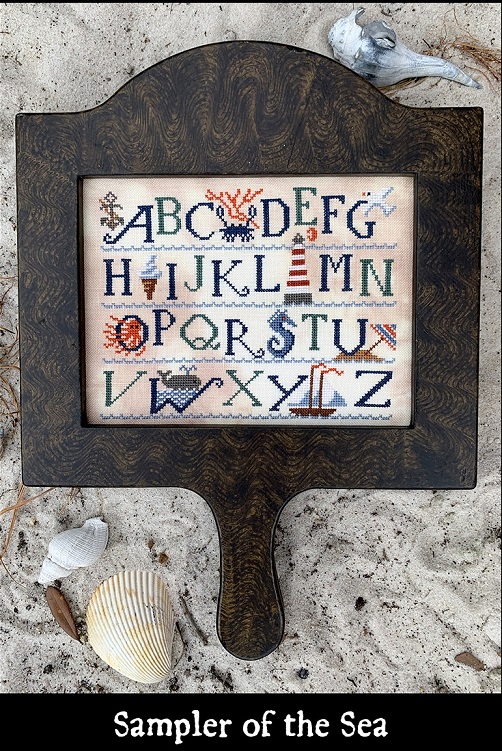 ABCDEFG
HIJKLMN
OPQRSTU
VWXYZ
Sampler of the Sea